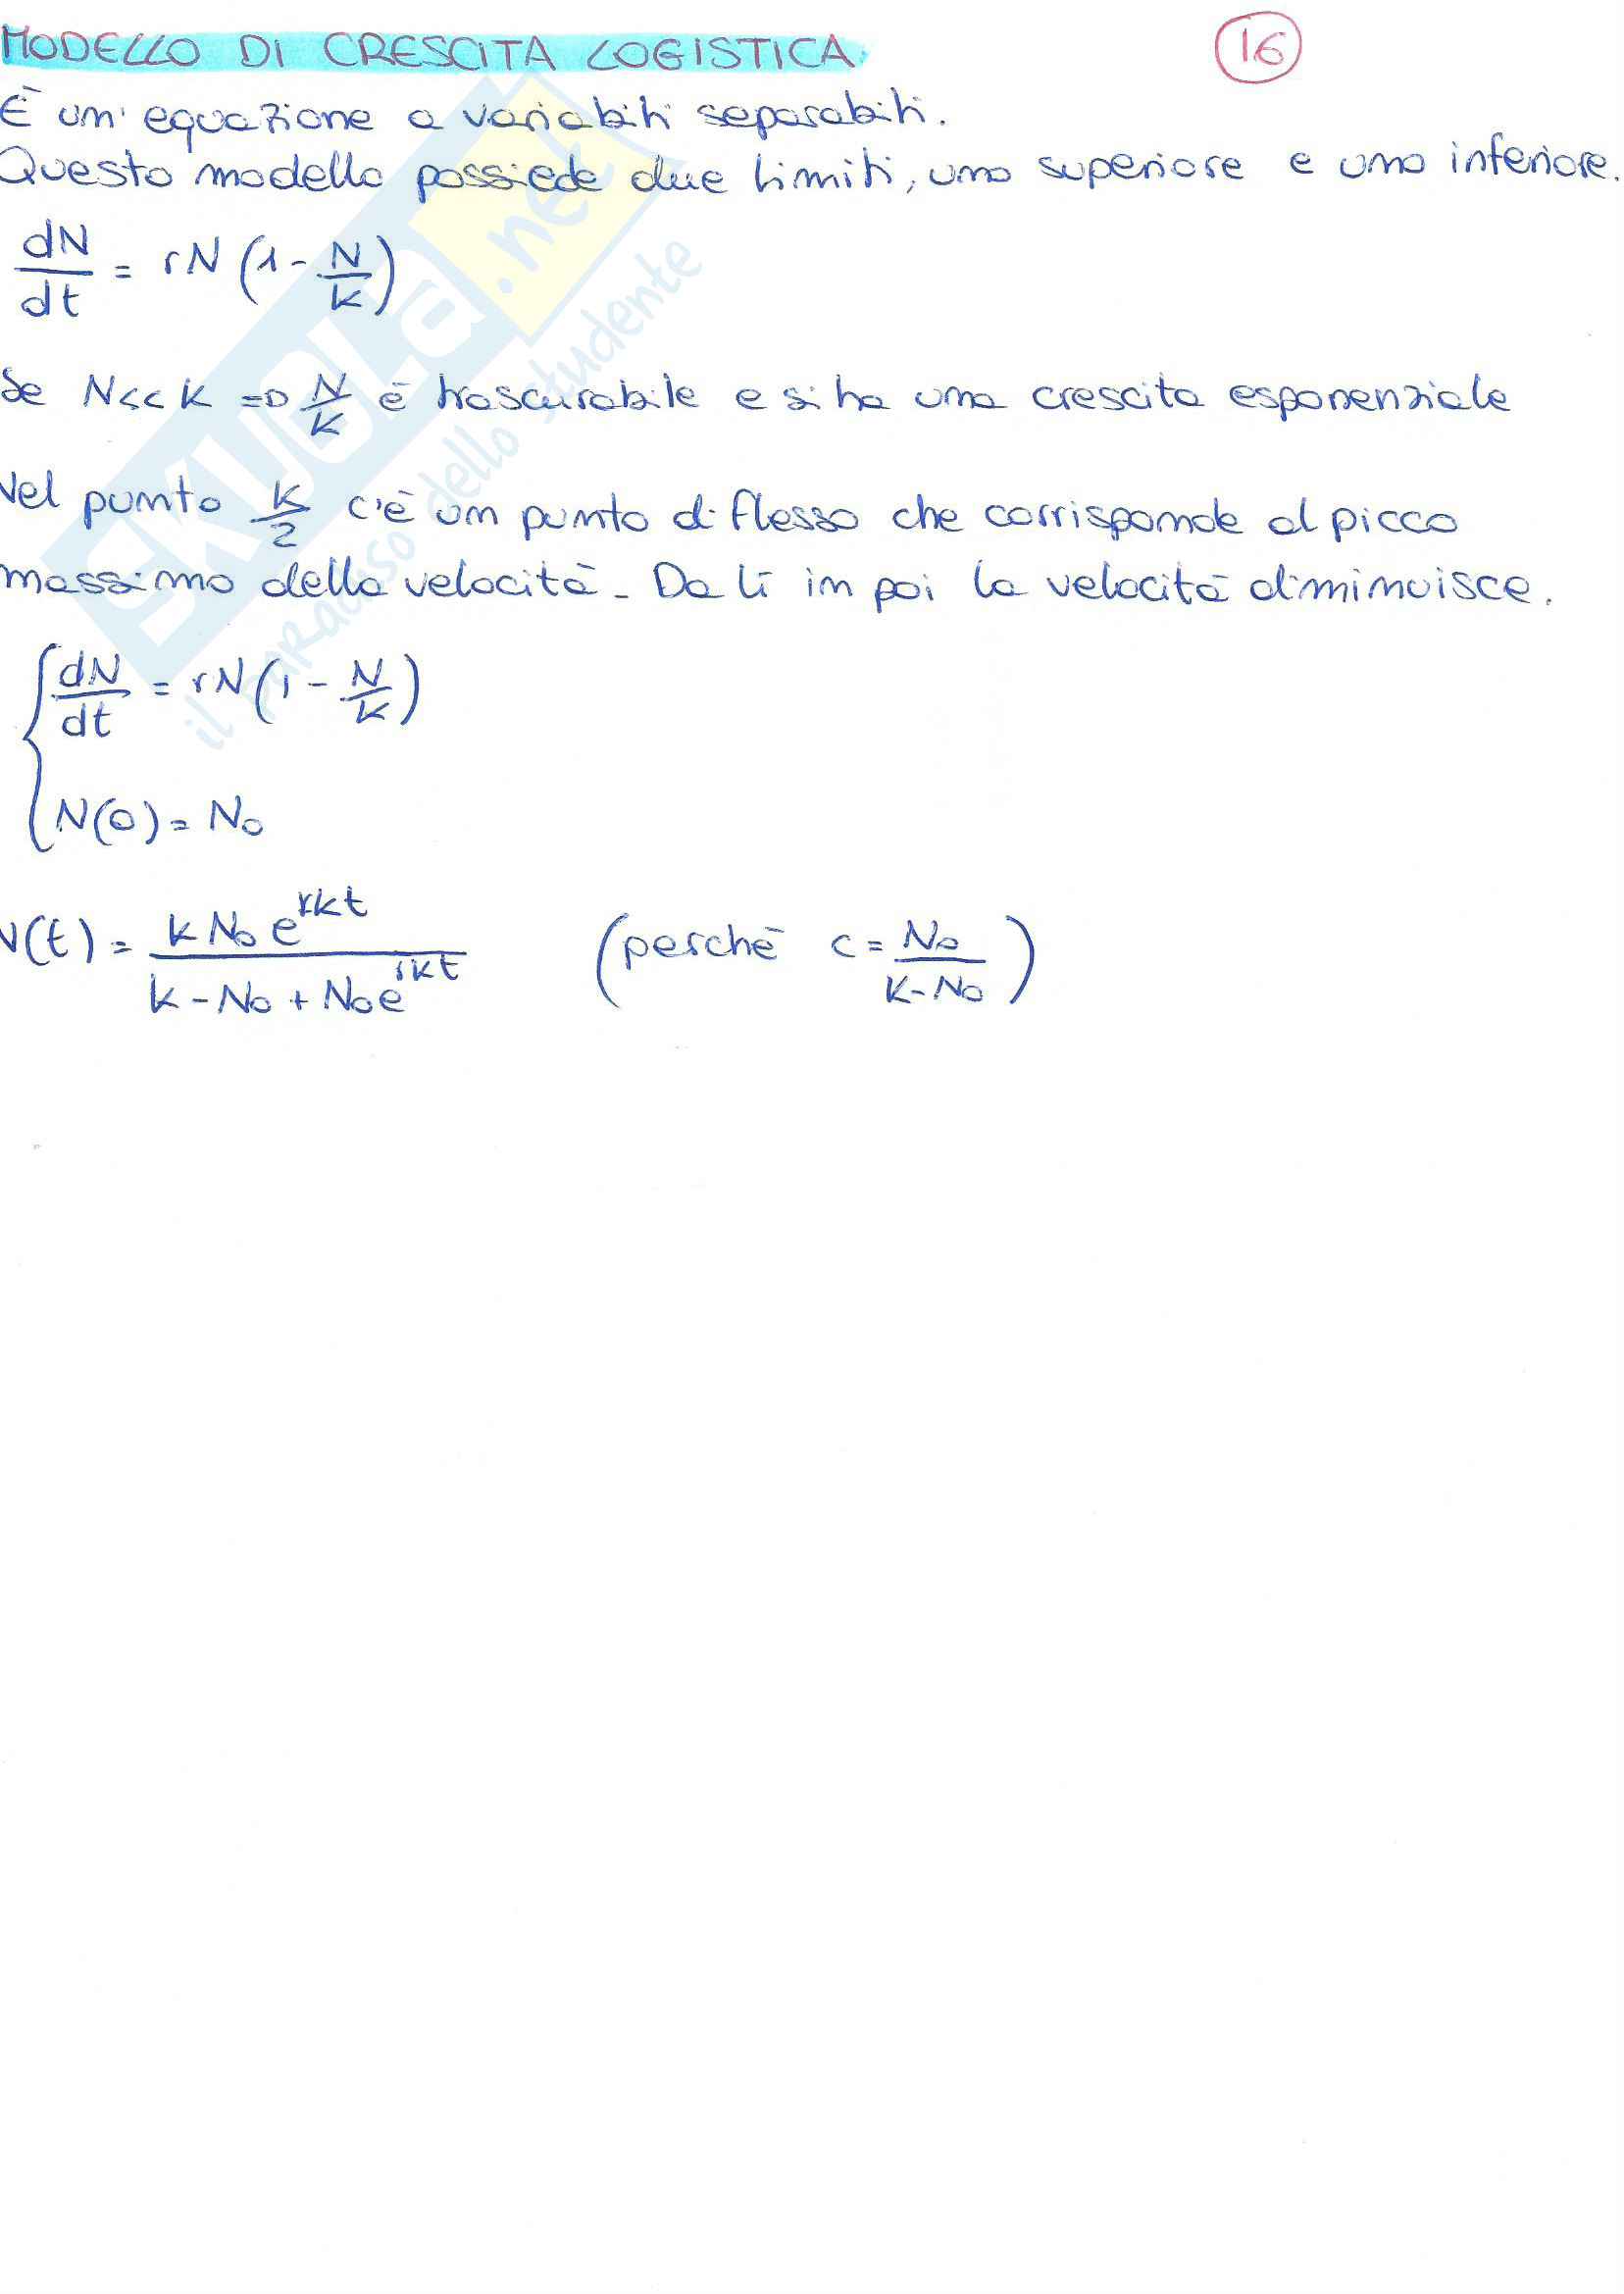 MODELLO DI CRESCITA LOGISTICA 16
È un'equazione a variabili separabili.
Questo modello possiede due limiti, uno superiore e uno inferiore.
dN/dt = rN (1 - N/k)
Se N << K => N/K è trascurabile e si ha una crescita esponenziale
Nel punto K/2 c'è un punto di flesso che corrisponde al picco
massimo della velocità. Da lì in poi la velocità diminuisce.
{ dN/dt = rN (1 - N/k)
N(0) = N₀
N(t) = k N₀ e^(rkt) / (k - N₀ + N₀ e^(rkt)) (perchè c = N₀/(K - N₀))
SKUOLA.net
il paradiso dello studente